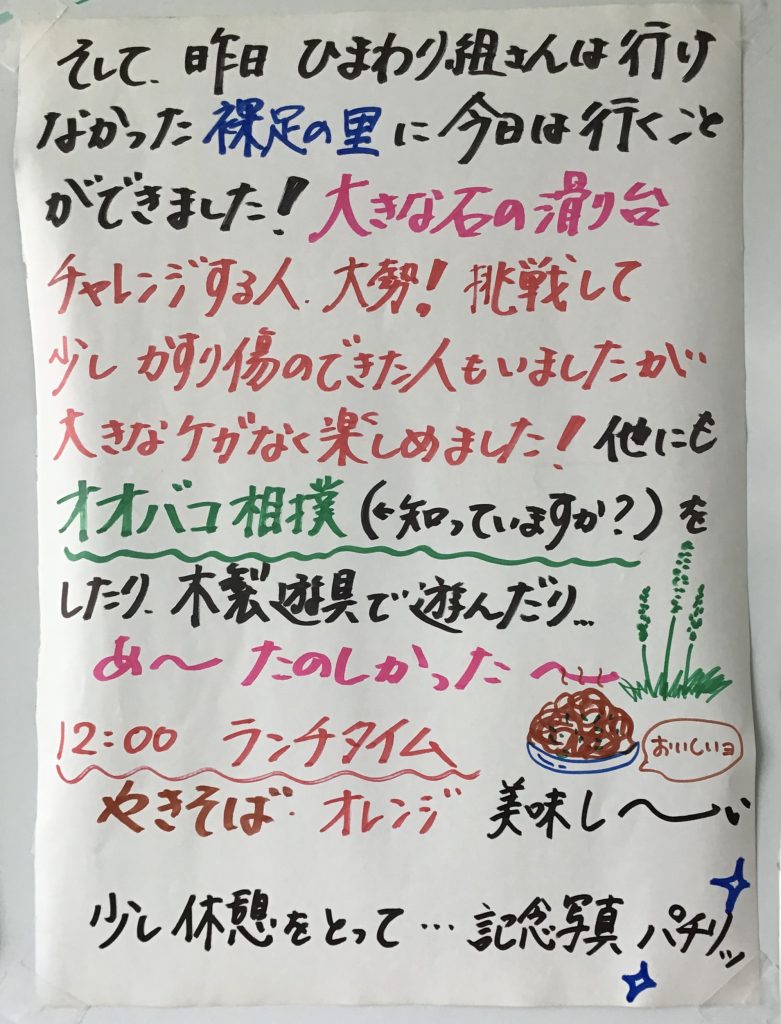 そして、昨日 ひまわり組さんは行け
なかった裸足の里に今日は行くこと
ができました！大きな石の滑り台
チャレンジする人、大勢！挑戦して
少しかすり傷のできた人もいましたが
大きなケガなく楽しめました！他にも
オオバコ相撲(←知っていますか？)を
したり、木製遊具で遊んだり…
あ〜たのしかった〜
12:00 ランチタイム
おいしいヨ
やきそば・オレンジ 美味し〜い
少し休憩をとって…記念写真パチリッ